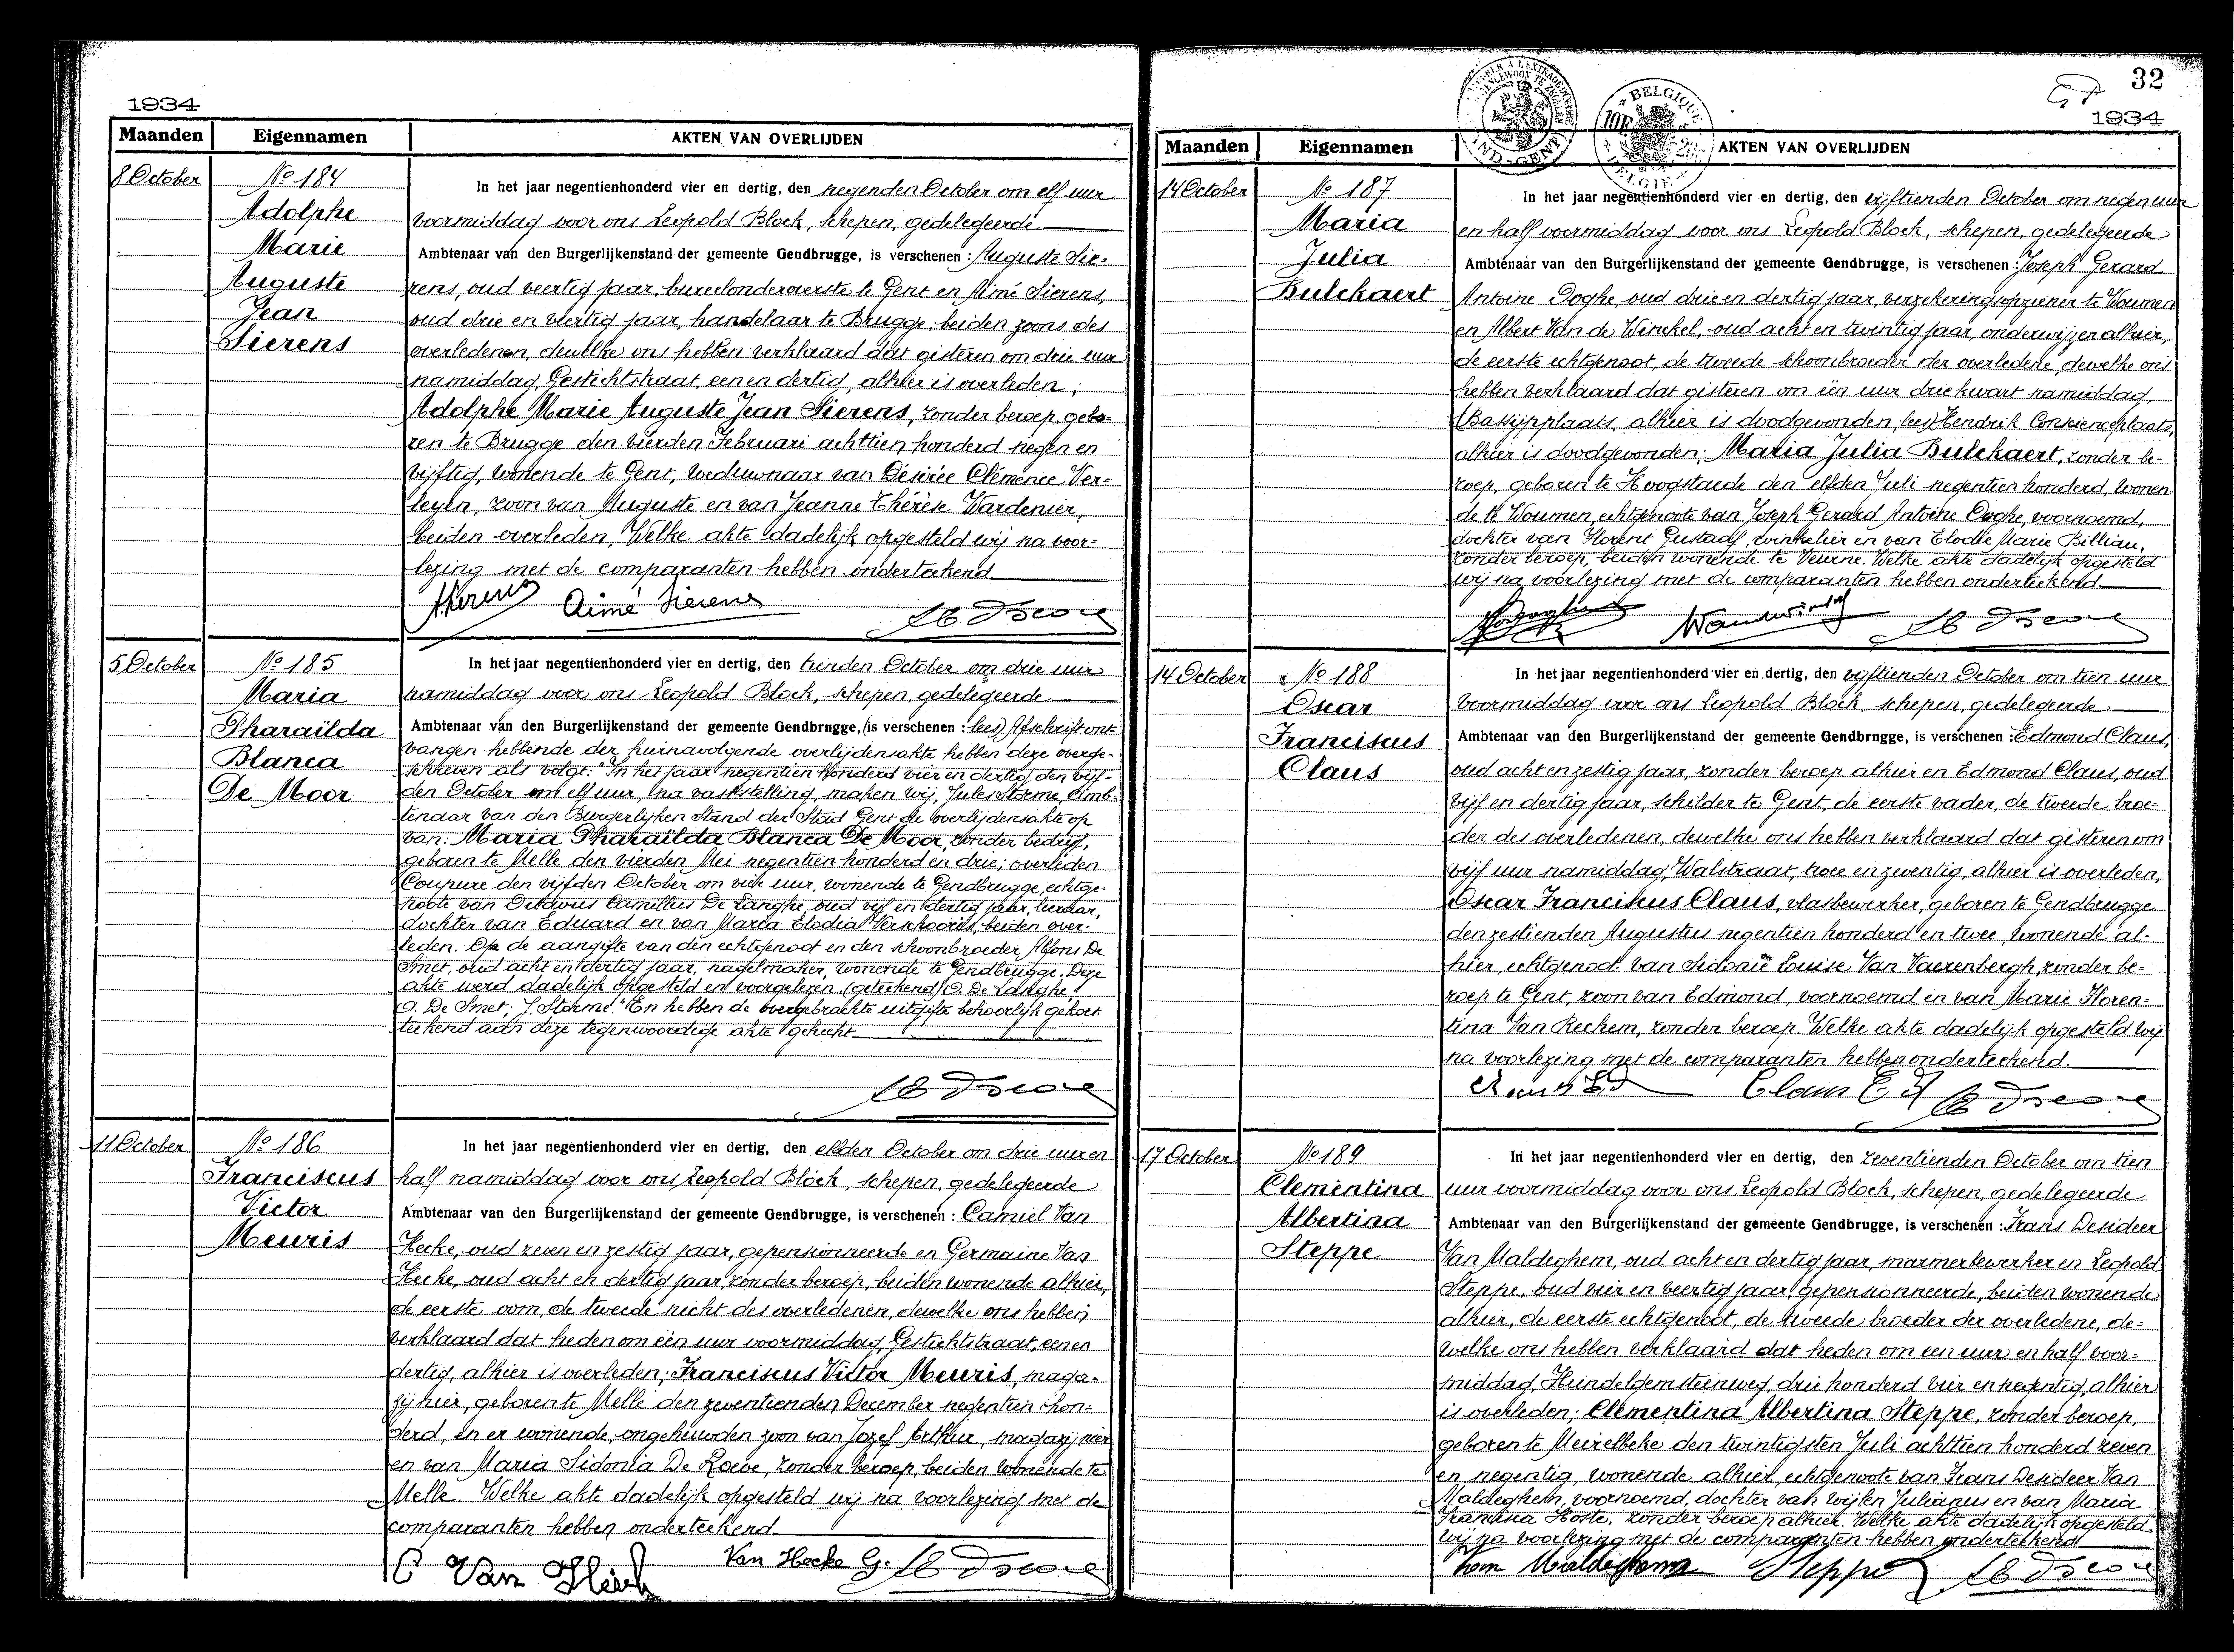 1934
Maanden Eigennamen AKTEN VAN OVERLIJDEN
8 October
No 184
Adolphe
Marie
Auguste
Jean
Sierens
In het jaar negentienhonderd vier en dertig, den negenden October om elf uur
voormiddag voor ons Leopold Block, schepen, gedelegeerde
Ambtenaar van den Burgerlijkenstand der gemeente Gendbrugge, is verschenen : Auguste Sie-
rens, oud veertig jaar, bureelonderoverste te Gent en Aimé Sierens,
oud drie en veertig jaar, handelaar te Brugge, beiden zoons des
overledenen, dewelke ons hebben verklaard dat gisteren om drie uur
namiddag, Gestichtstraat, een en dertig, alhier is overleden;
Adolphe Marie Auguste Jean Sierens, zonder beroep, gebo-
ren te Brugge den vierden Februari achttien honderd negen en
vijftig, wonende te Gent, weduwnaar van Désirée Clémence Ver-
leyen, zoon van Auguste en van Jeanne Thérèse Wardenier,
beiden overleden, Welke akte dadelijk opgesteld wij na voor-
lezing met de comparanten hebben onderteekend.
Aimé Sierens
5 October
No 185
Maria
Pharaïlda
Blanca
De Moor
In het jaar negentienhonderd vier en dertig, den tienden October om drie uur
namiddag voor ons Leopold Block, schepen, gedelegeerde
Ambtenaar van den Burgerlijkenstand der gemeente Gendbrugge, (is verschenen : lees) Afschrift ont-
vangen hebbende der hiernavolgende overlijdensakte hebben deze overge-
schreven als volgt: "In het jaar negentien honderd vier en dertig den vijf-
den October om elf uur, na vaststelling, maken wij, Jules Storme, Amb-
tenaar van den Burgerlijken Stand der Stad Gent de overlijdensakte op
van: Maria Pharaïlda Blanca De Moor, zonder bedrijf,
geboren te Melle den vierden Mei negentien honderd en drie; overleden
Coupure den vijfden October om vier uur, wonende te Gendbrugge, echtge-
noote van Octavus Camillus De Langhe, oud vijf en dertig jaar, leeraar,
dochter van Eduard en van Maria Elodia Verschoore, beiden over-
leden. Op de aangifte van den echtgenoot en den schoonbroeder, Alfons De
Smet, oud acht en dertig jaar, nagelmaker, wonende te Gendbrugge. Deze
akte werd dadelijk opgesteld en voorgelezen. (geteekend) O. De Langhe
A. De Smet; J. Storme." En hebben de overgebrachte uitgifte behoorlijk gekort
teekend aan deze tegenwoordige akte gehecht
11 October
No 186
Franciscus
Victor
Meuris
In het jaar negentienhonderd vier en dertig, den elfden October om drie uur en
half namiddag voor ons Leopold Block, schepen, gedelegeerde
Ambtenaar van den Burgerlijkenstand der gemeente Gendbrugge, is verschenen : Camiel Van
Hecke, oud zeven en zestig jaar, gepensionneerde en Germaine Van
Hecke, oud acht en dertig jaar, zonder beroep, beiden wonende alhier,
de eerste oom, de tweede nicht des overledenen, dewelke ons hebben
verklaard dat heden om één uur voormiddag, Gestichtstraat, een en
dertig, alhier is overleden; Franciscus Victor Meuris, maga-
zijnier, geboren te Melle den zeventienden December negentien hon-
derd, en er wonende, ongehuwden zoon van Jozef Arthur, magazijnier
en van Maria Sidonia De Loeve, zonder beroep, beiden wonende te
Melle. Welke akte dadelijk opgesteld wij na voorlezing met de
comparanten hebben onderteekend
C Van Heck Van Hecke G.
32
1934
Maanden Eigennamen AKTEN VAN OVERLIJDEN
14 October
No 187
Maria
Julia
Bulckaert
In het jaar negentienhonderd vier en dertig, den vijftienden October om negen uur
en half voormiddag voor ons Leopold Block, schepen, gedelegeerde
Ambtenaar van den Burgerlijkenstand der gemeente Gendbrugge, is verschenen : Joseph Gerard
Antoine Ooghe, oud drie en dertig jaar, verzekeringsopziener te Woumen
en Albert Van de Winckel, oud acht en twintig jaar, onderwijzer alhier,
de eerste echtgenoot, de tweede schoonbroeder der overledene, dewelke ons
hebben verklaard dat gisteren om één uur drie kwart namiddag,
alhier is doodgevonden, lees) Hendrik Conscienceplaats,
alhier is doodgevonden; Maria Julia Bulckaert, zonder be-
roep, geboren te Hoogstaede den elfden Juli negentien honderd, wonen-
de te Woumen, echtgenoote van Joseph Gerard Antoine Ooghe, voornoemd,
dochter van Florent Gustaaf, winkelier en van Elodie Marie Billiau,
zonder beroep, beiden wonende te Veurne. Welke akte dadelijk opgesteld
wij na voorlezing met de comparanten hebben onderteekend
14 October
No 188
Oscar
Franciscus
Claus
In het jaar negentienhonderd vier en dertig, den vijftienden October om tien uur
voormiddag voor ons Leopold Block, schepen, gedelegeerde
Ambtenaar van den Burgerlijkenstand der gemeente Gendbrugge, is verschenen : Edmond Claus,
oud acht en zestig jaar, zonder beroep alhier en Edmond Claus, oud
vijf en dertig jaar, schilder te Gent, de eerste vader, de tweede broe-
der des overledenen, dewelke ons hebben verklaard dat gisteren om
vijf uur namiddag, Walstraat, twee en zeventig, alhier is overleden;
Oscar Franciskus Claus, vlasbewerker, geboren te Gendbrugge
den zestienden Augustus negentien honderd en twee, wonende al-
hier, echtgenoot van Sidonie Luise Van Vaerenbergh, zonder be-
roep te Gent, zoon van Edmond, voornoemd en van Marie Floren-
tina Van Rechem, zonder beroep. Welke akte dadelijk opgesteld wij
na voorlezing met de comparanten hebben onderteekend.
Claus Ed Claus Ed
17 October
No 189
Clementina
Albertina
Steppe
In het jaar negentienhonderd vier en dertig, den zeventienden October om tien
uur voormiddag voor ons Leopold Block, schepen, gedelegeerde
Ambtenaar van den Burgerlijkenstand der gemeente Gendbrugge, is verschenen : Frans Desideer
Van Maldeghem, oud acht en dertig jaar, marmerbewerker en Leopold
Steppe, oud vier en veertig jaar, gepensionneerde, beiden wonende
alhier, de eerste echtgenoot, de tweede broeder der overledene, de-
welke ons hebben verklaard dat heden om een uur en half voor-
middag, Hundelgemsteenweg, drie honderd vier en negentig, alhier
is overleden; Clementina Albertina Steppe, zonder beroep,
geboren te Meirelbeke den twintigsten Juli achttien honderd zeven
en negentig, wonende alhier, echtgenoote van Frans Desideer Van
Maldeghem, voornoemd, dochter van wijlen Julianus en van Maria
Francisca Hoste, zonder beroep alhier. Welke akte dadelijk opgesteld
wij na voorlezing met de comparanten hebben onderteekend
Van Maldeghem Steppe